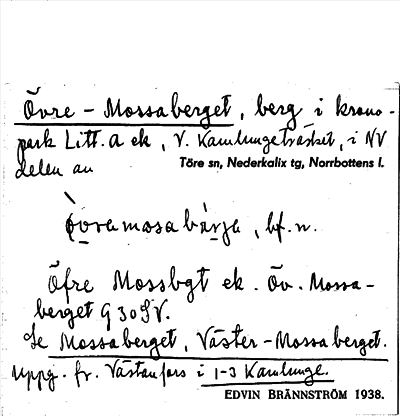 Övre-Mossaberget, berg i krono-
park Litt. A ek, V. Kamlungeträsket, i NV
delen av Töre sn, Nederkalix tg, Norrbottens l.
òvramosabàrja, bf. n.
Öfre Mossbgt ek. Öv. Mossa-
berget G 30 SV.
Se Mossaberget, Väster-Mossaberget.
Uppg. fr. Västanfors i 1-3 Kamlunge.
EDVIN BRÄNNSTRÖM 1938.